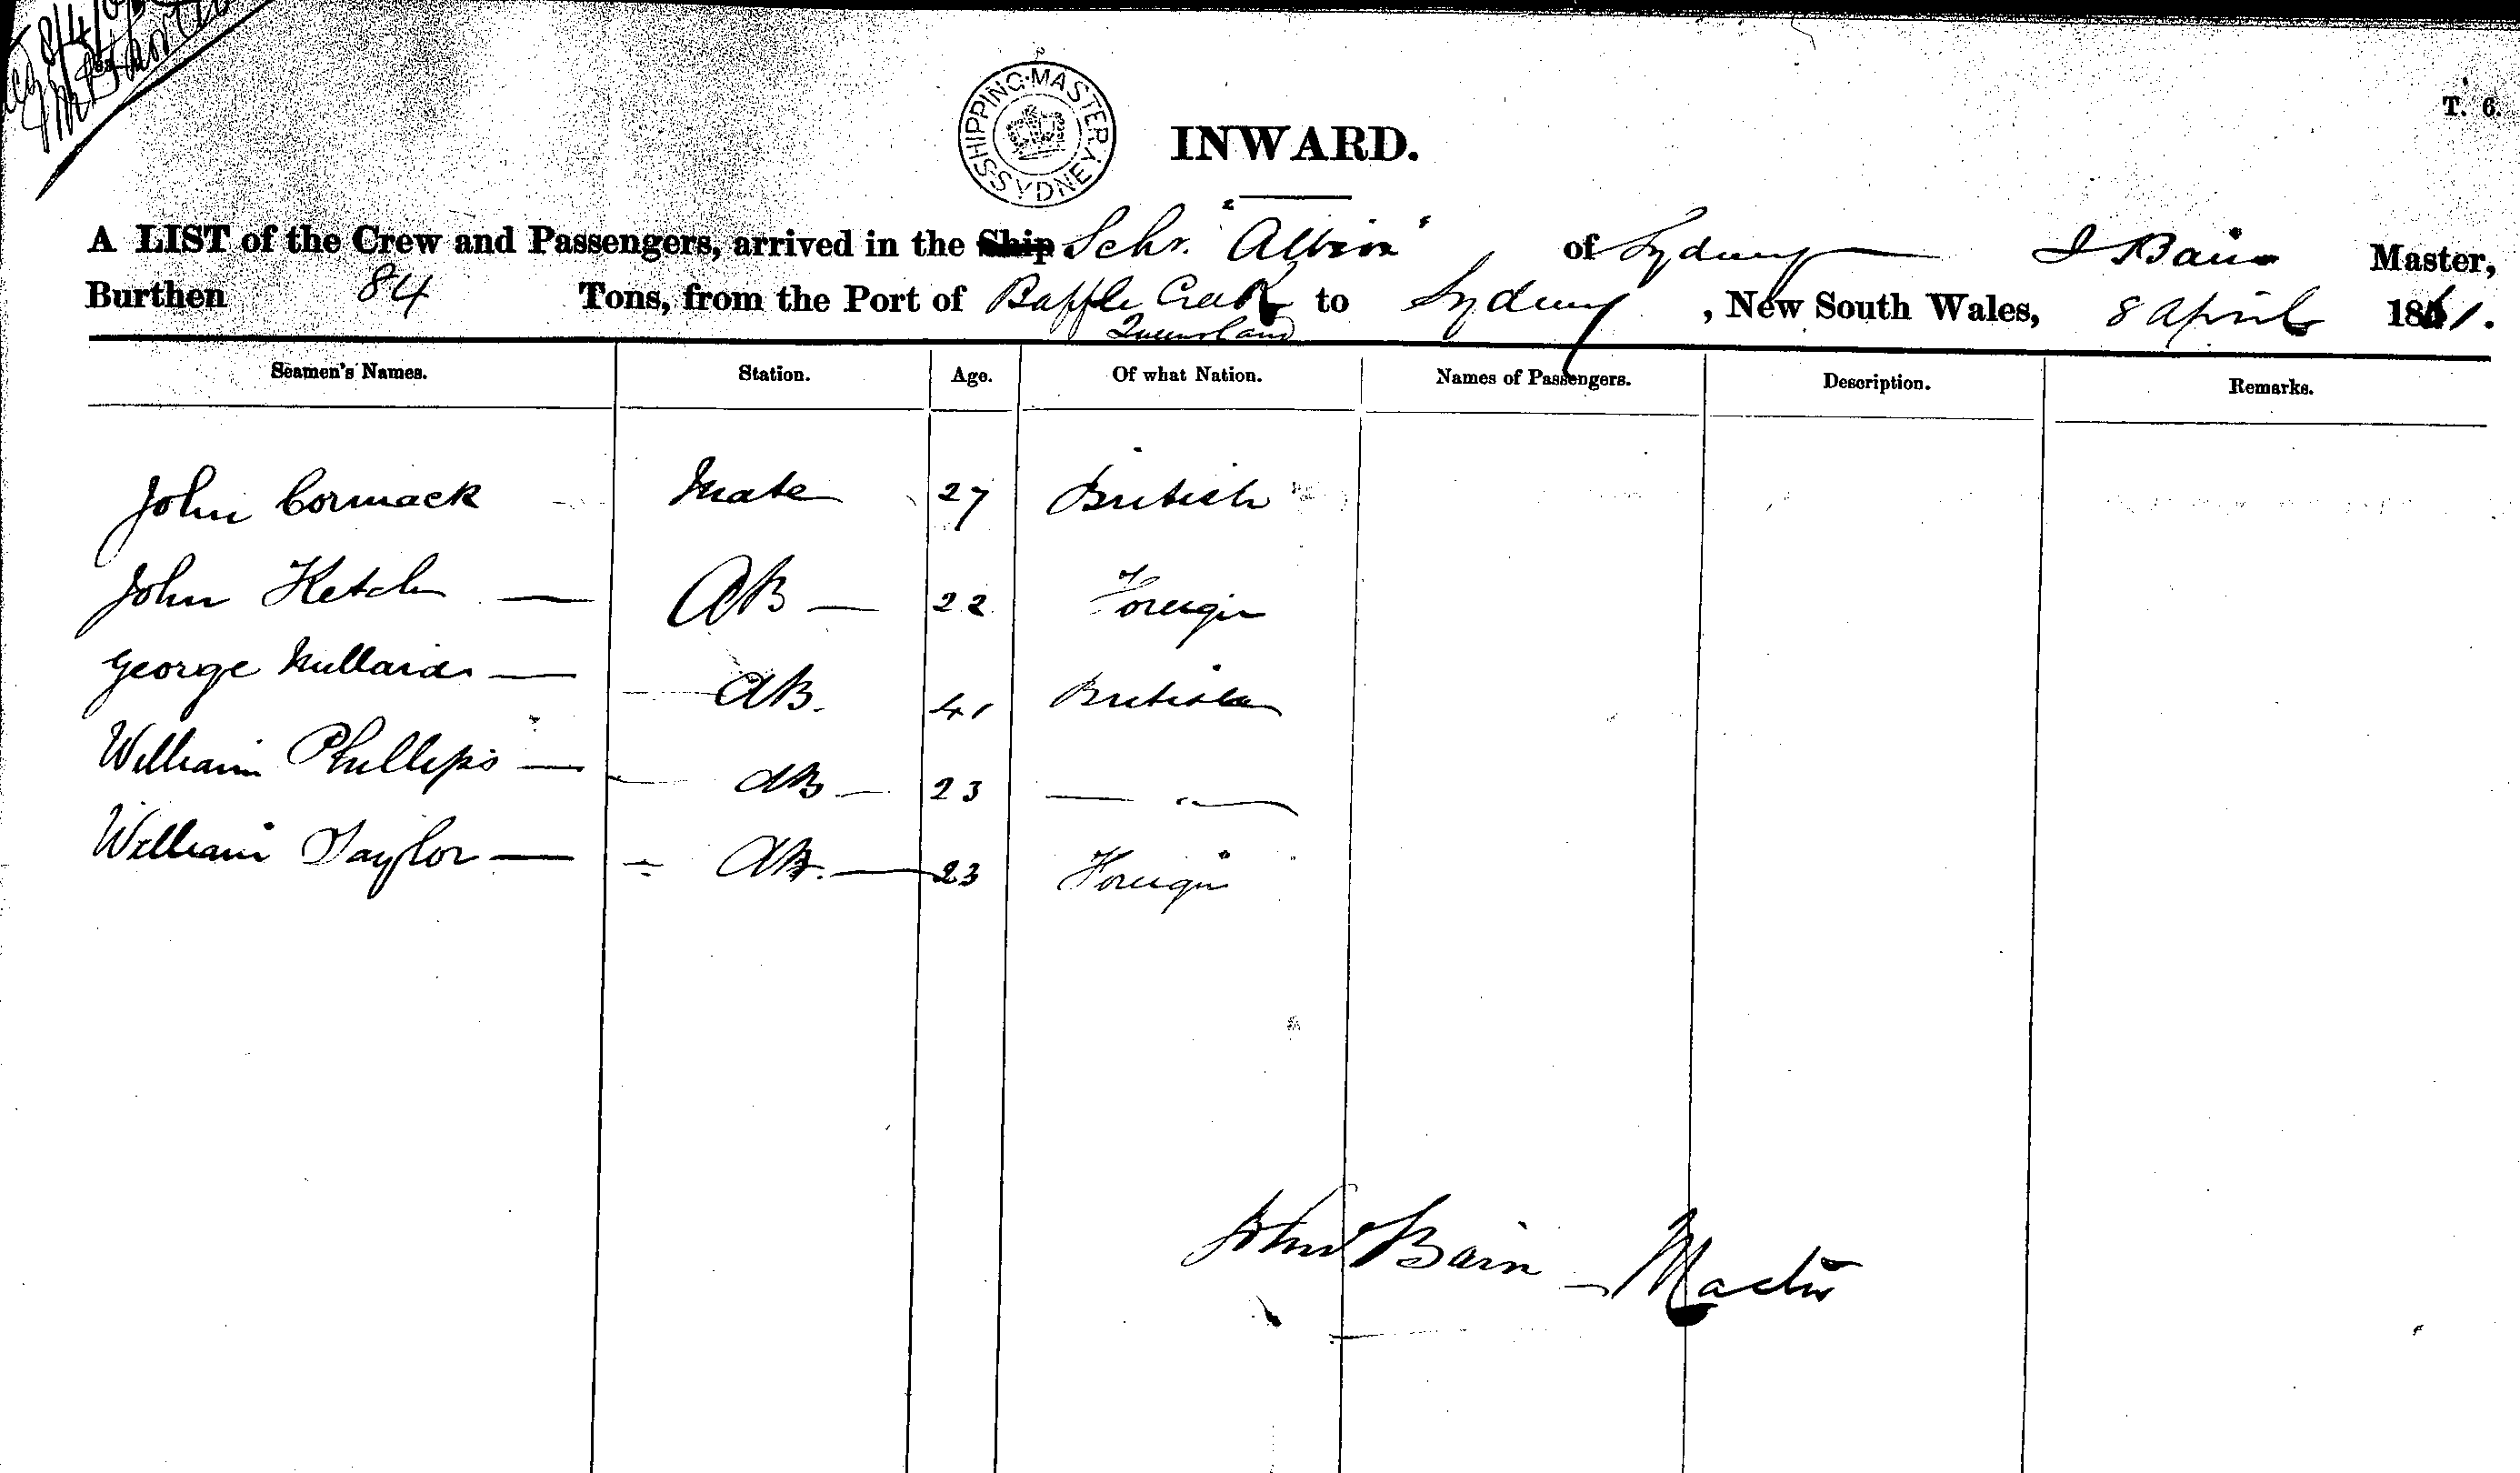 SHIPPING MASTER SYDNEY
INWARD.
T. 6.
A LIST of the Crew and Passengers, arrived in the Ship Schr. "Albion" of Sydney J Bain Master,
Burthen 84 Tons, from the Port of Baffle Creek Queensland to Sydney, New South Wales, 8 April 1861.
Seamen's Names. Station. Age. Of what Nation. Names of Passengers. Description. Remarks.
John Cormack Mate 27 British
John Ketch AB 22 Foreign
George Mullard AB. 41 British
William Phillips AB 23 "
William Taylor AB. 23 Foreign
John Bain Master